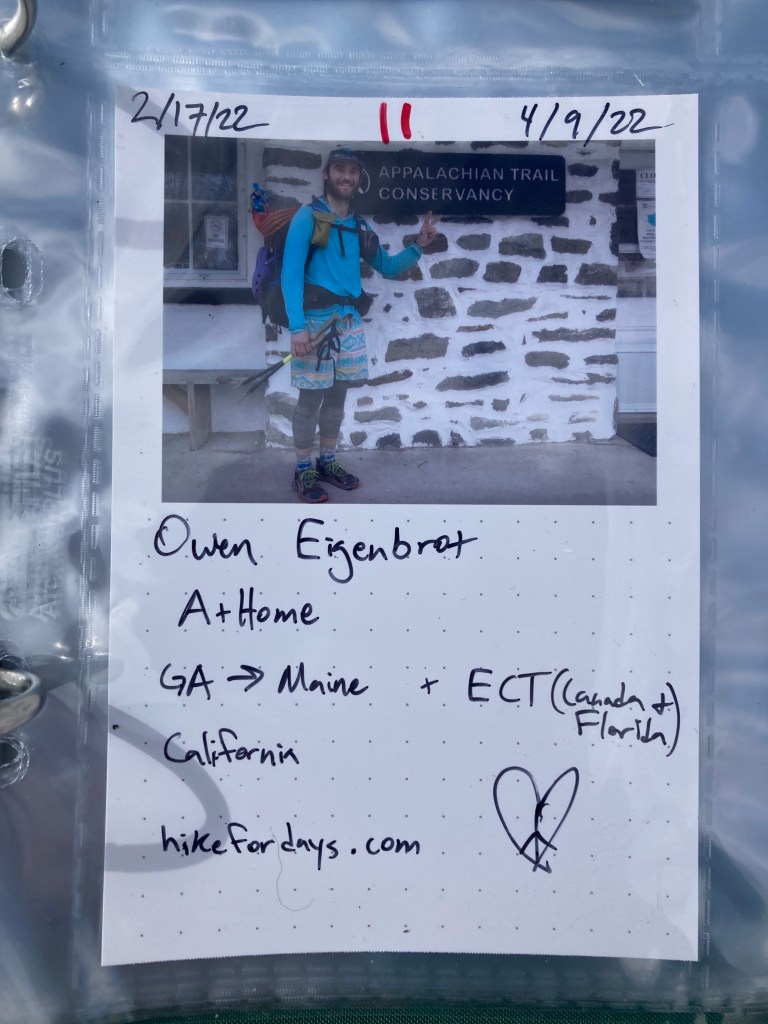 2/17/22 11 4/9/22
APPALACHIAN TRAIL
CONSERVANCY
Owen Eigenbrot
At Home
GA → Maine + ECT (Canada +
Florida)
California
hikefordays.com